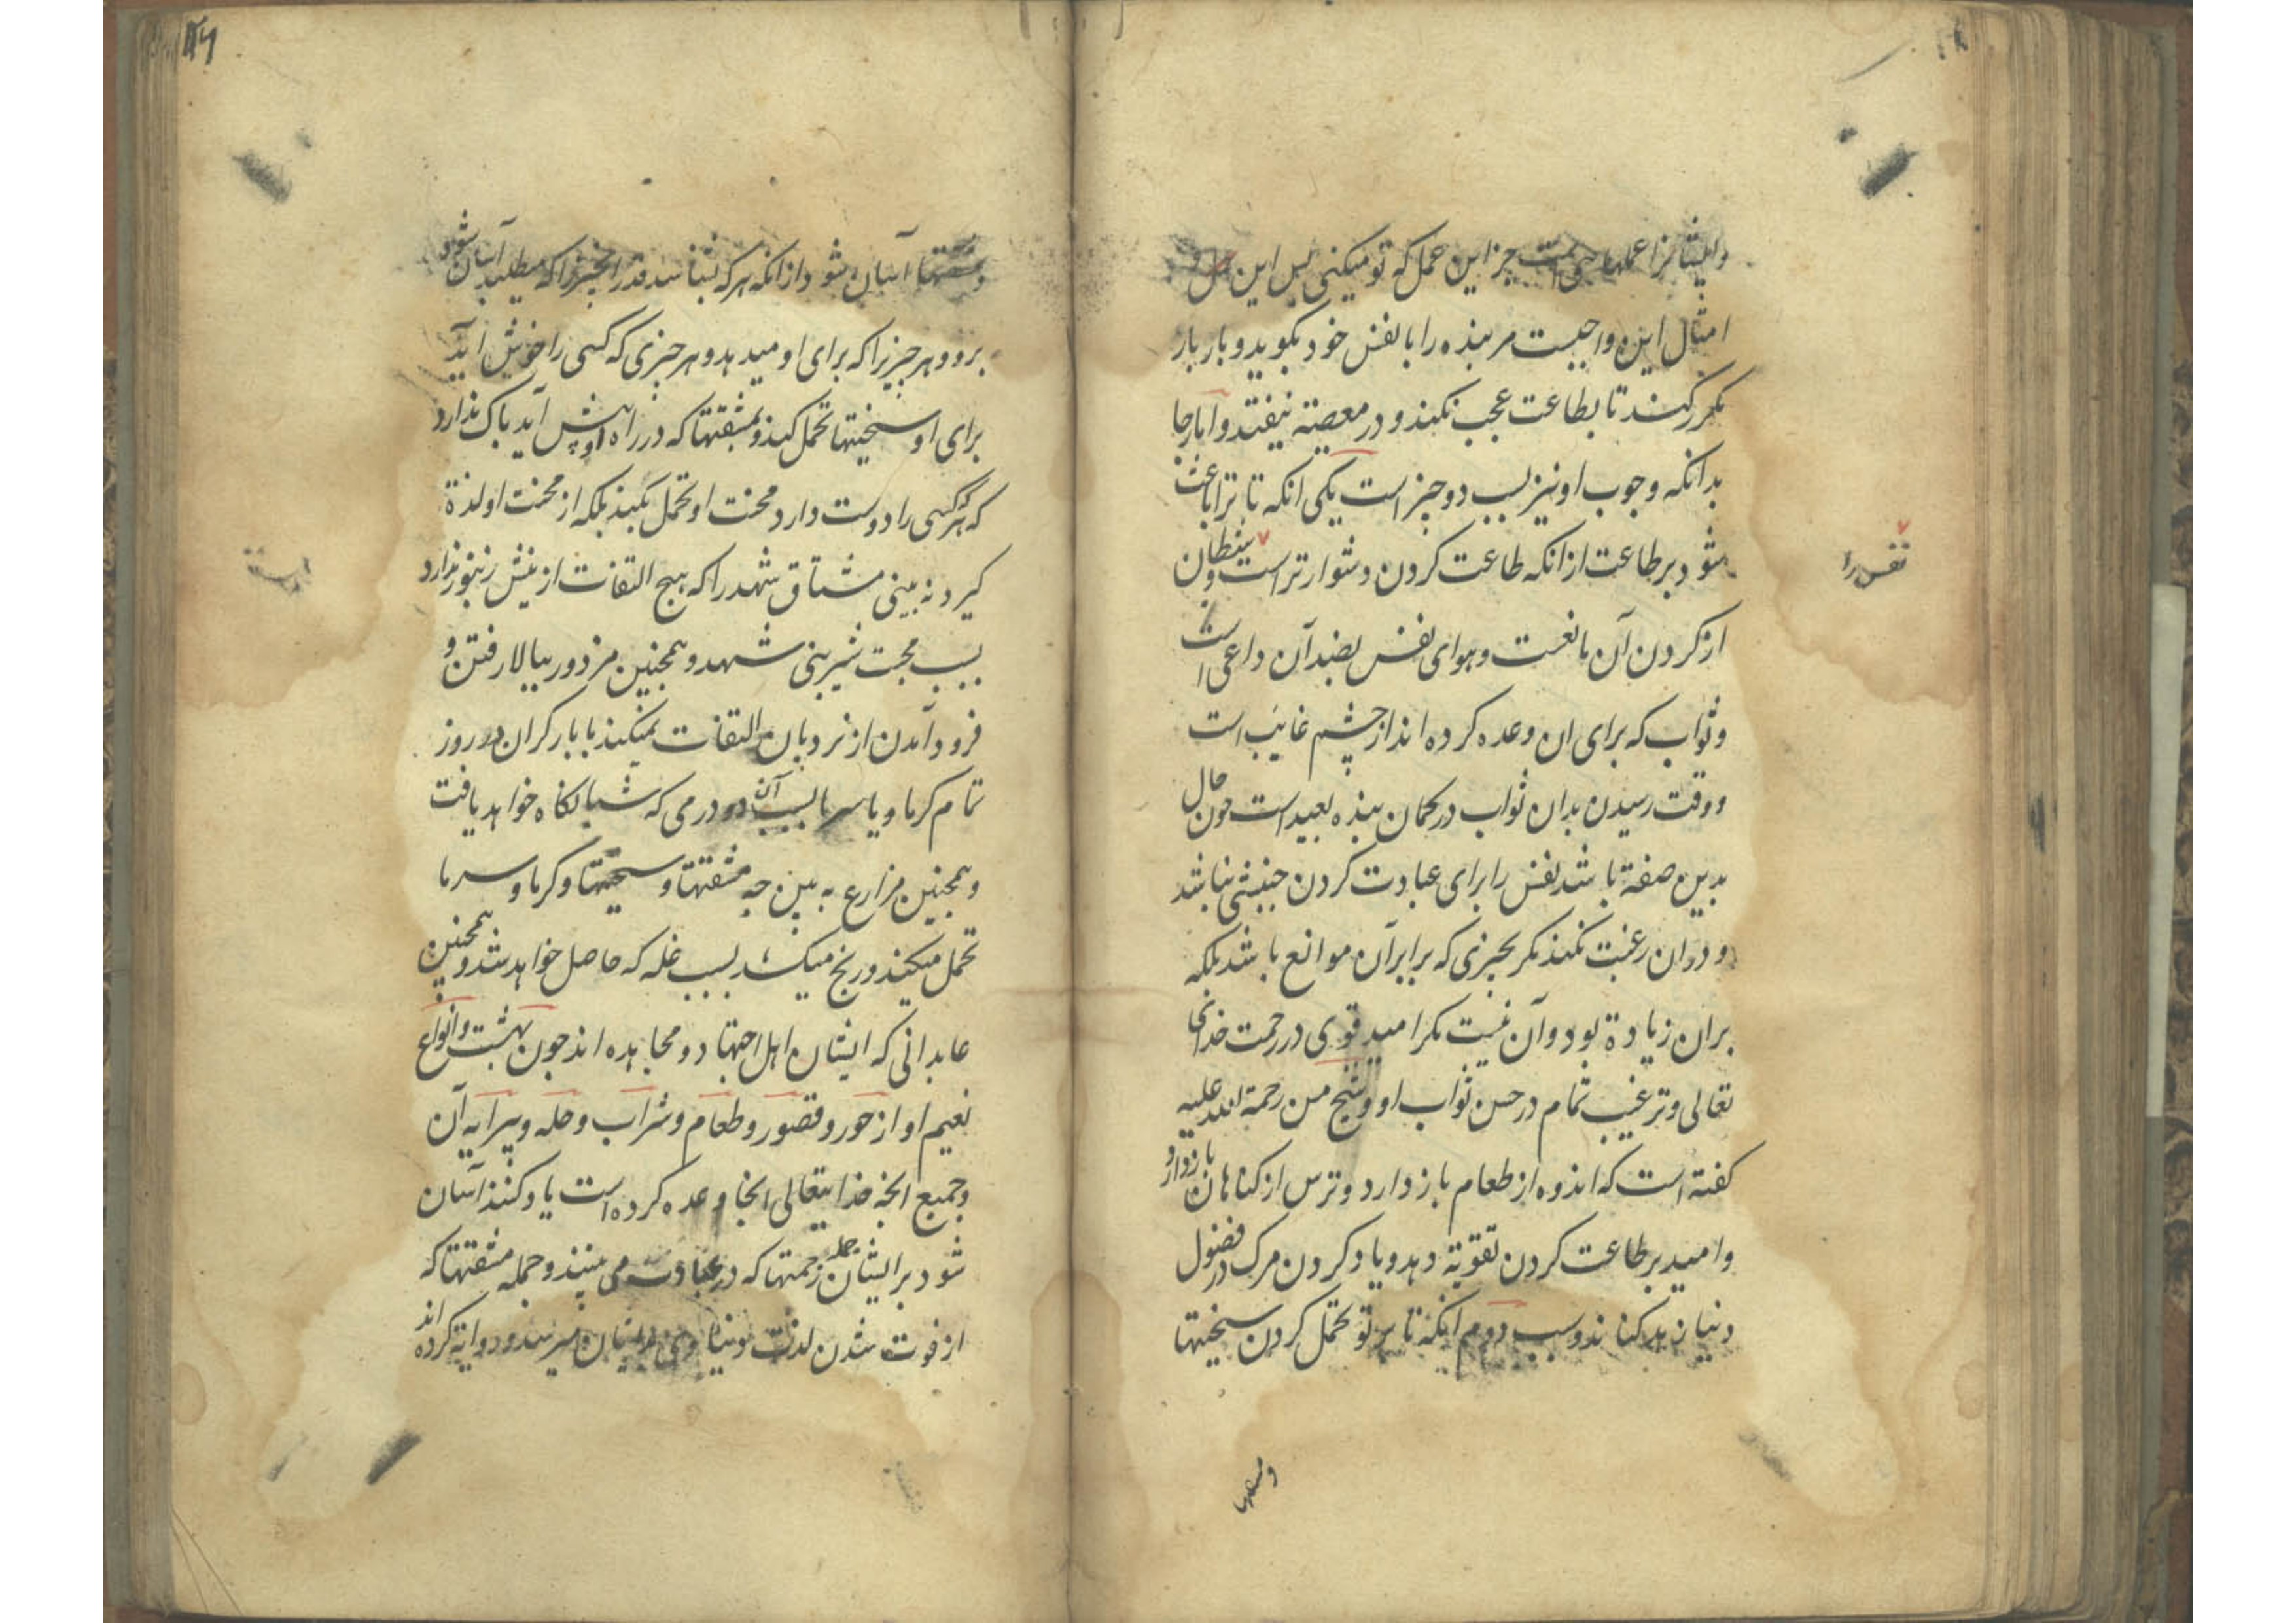 وایشانرا عملها نیست جز این عمل که تو میکنی پس این و
امثال این واجبست مر بنده را با نفس خود بکوید و بار بار
مکرر کند تا بطاعت عجب نکند و در معصیة نیفتد و اما رجا
بدانکه وجوب او نیز بسبب دو چیز است یکی انکه تا ترا باعث
شود بر طاعت از انکه طاعت کردن دشوارتر است و شیطان
نفس را
از کردن آن مانعست و هوای نفس بضد آن داعی است
و ثواب که برای ان وعده کرده اند از چشم غایب است
و وقت رسیدن بدان ثواب در کمان بنده بعید است چون حال
بدین صفة باشد نفس را برای عبادت کردن جنبشی نباشد
و دران رغبت نکند مکر بچیزی که برابر آن موانع باشد بلکه
بران زیادة بود و آن نیست مکر امید قوی در رحمت خدای
تعالی و ترغیب تمام در حسن ثواب او و شیخ من رحمة الله علیه
کفته است که اندوه از طعام باز دارد و ترس از کناهان باز دارد و
و امید بر طاعت کردن تقویة دهد و یاد کردن مرک در فضول
دنیا زهد کناند و سبب دوم انکه تا بر تو تحمل کردن سختیها
۱۵۶
و مشقتها آسان شود از انکه هر که بشناسد قدر انچیز را که میطلبد آسان شود
برو و هر چیزیرا که برای او میدهد و هر چیزی که کسی را خوش اید
برای او سختیها تحمل کند و بمشقتها که در راه او پیش آید باک ندارد
که هر که کسی را دوست دارد محنت او تحمل بکند بلکه از محنت او لذة
کیرد نه بینی مشتاق شهد را که هیچ التفات از نیش زنبور ندارد
بسبب محبت شیرینی شهد و همچنین مزدور ببالا رفتن و
فرود آمدن از نردبان التفات نمیکند با بار کران در روز
تمام کرما و یا سرما بسبب آن دو درمی که شبانکاه خواهد یافت
و همچنین مزارع ببین چه مشقتها و سختیها و کرما و سرما
تحمل میکند و رنج میکشد بسبب غله که حاصل خواهد شد و همچنین
عابدانی که ایشان اهل اجتهاد و مجاهده اند چون بهشت و انواع
نعیم او از حور و قصور و طعام و شراب و حله و پیرایه آن
و جمیع انچه خدایتعالی انجا وعده کرده است یاد کنند آسان
شود بر ایشان جمله زحمتها که در عبادت می بینند و جمله مشقتها که
از فوت شدن لذت دنیاوی بدیشان میرسد و روایة کرده اند